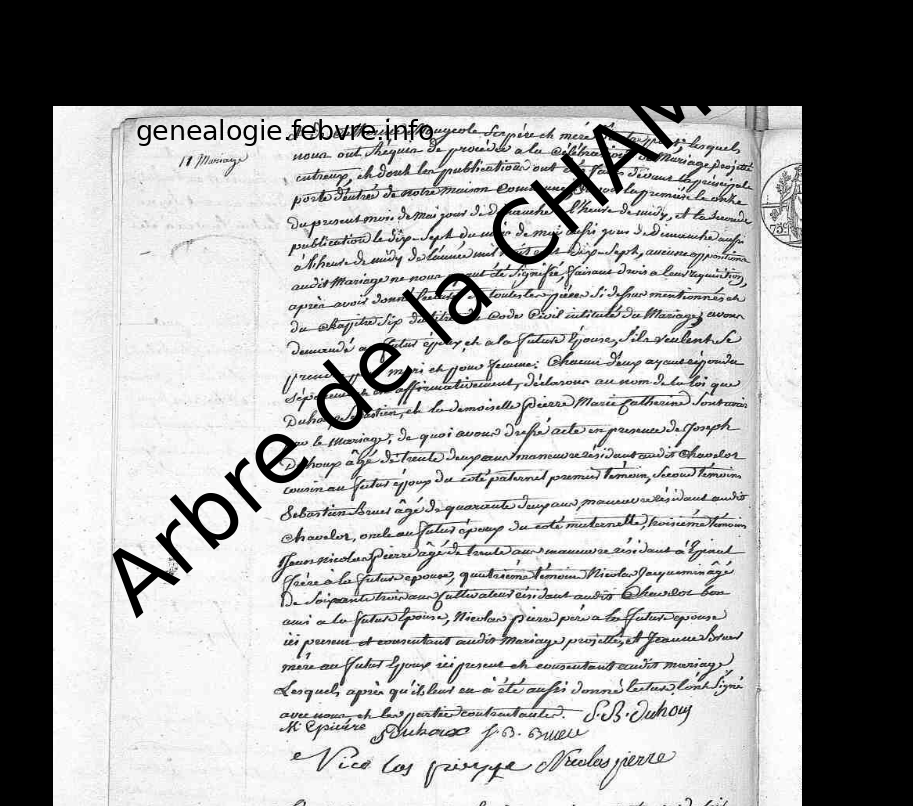 genealogie.febvre.info
Arbre de la CHAM
11 Mariage
nous ont requis de procéder a la célébration du Mariage projetté
entreux, et dont les publications ont été faites devant la principale
porte d'entrée de notre maison Commune, Savoir la première le onze
du present mois de mai jour de dimanche à l'heure de midy, et la seconde
publication le dix-Sept du mois de mai aussi jour de dimanche aussi
à l'heure de midy de l'année mil huit cent Dix-Sept, aucune opposition
audit Mariage ne nous ayant été Signifiée, faisant droit a leur requisition,
après avoir donné lecture de toutes les pièces Si dessus mentionnées et
du Chapitre Six du titre du Code Civil intitulé du Mariage, avons
demandé au futur époux et a la future Epouse, S'ils veulent Se
prendre pour mari et pour femme: Chacun d'eux ayant répondu
Séparement et affirmativement, déclarons au nom de la loi que
Duhoux Sebastien, et la demoiselle pierre Marie Catherine Sont unis
par le Mariage, de quoi avons dressé acte en presence de Joseph
Duhoux âgé de trente deux ans manoeuvre résidant audit Chavelot
cousin au futur époux du coté paternel premier témoin, Second témoin
Sebastien Bruer âgé de quarante deux ans, manoeuvre résidant audit
Chavelot, oncle au futur époux du coté maternelle, troisième témoin
Jean Nicolas Pierre âgé de trente ans manoeuvre résidant à Epinal
frère à la future epouse, quatrième témoin Nicolas Jacquemin âgé
De Soixante trois ans Cultivateur résidant audit Chavelot bon
ami a la future Epouse, Nicolas pierre père a la future epouse
ici present et consentant audit Mariage projetté, et Jeanne Bruer
mère au futur Epoux ici present et consentant audit mariage
Lesquels après qu'il leur en à été aussi donné lecture l'ont Signé
avec nous, et les parties contractantes. S. B. Duhoux
SDuhoux
Nico las pierre Nicolas pierre